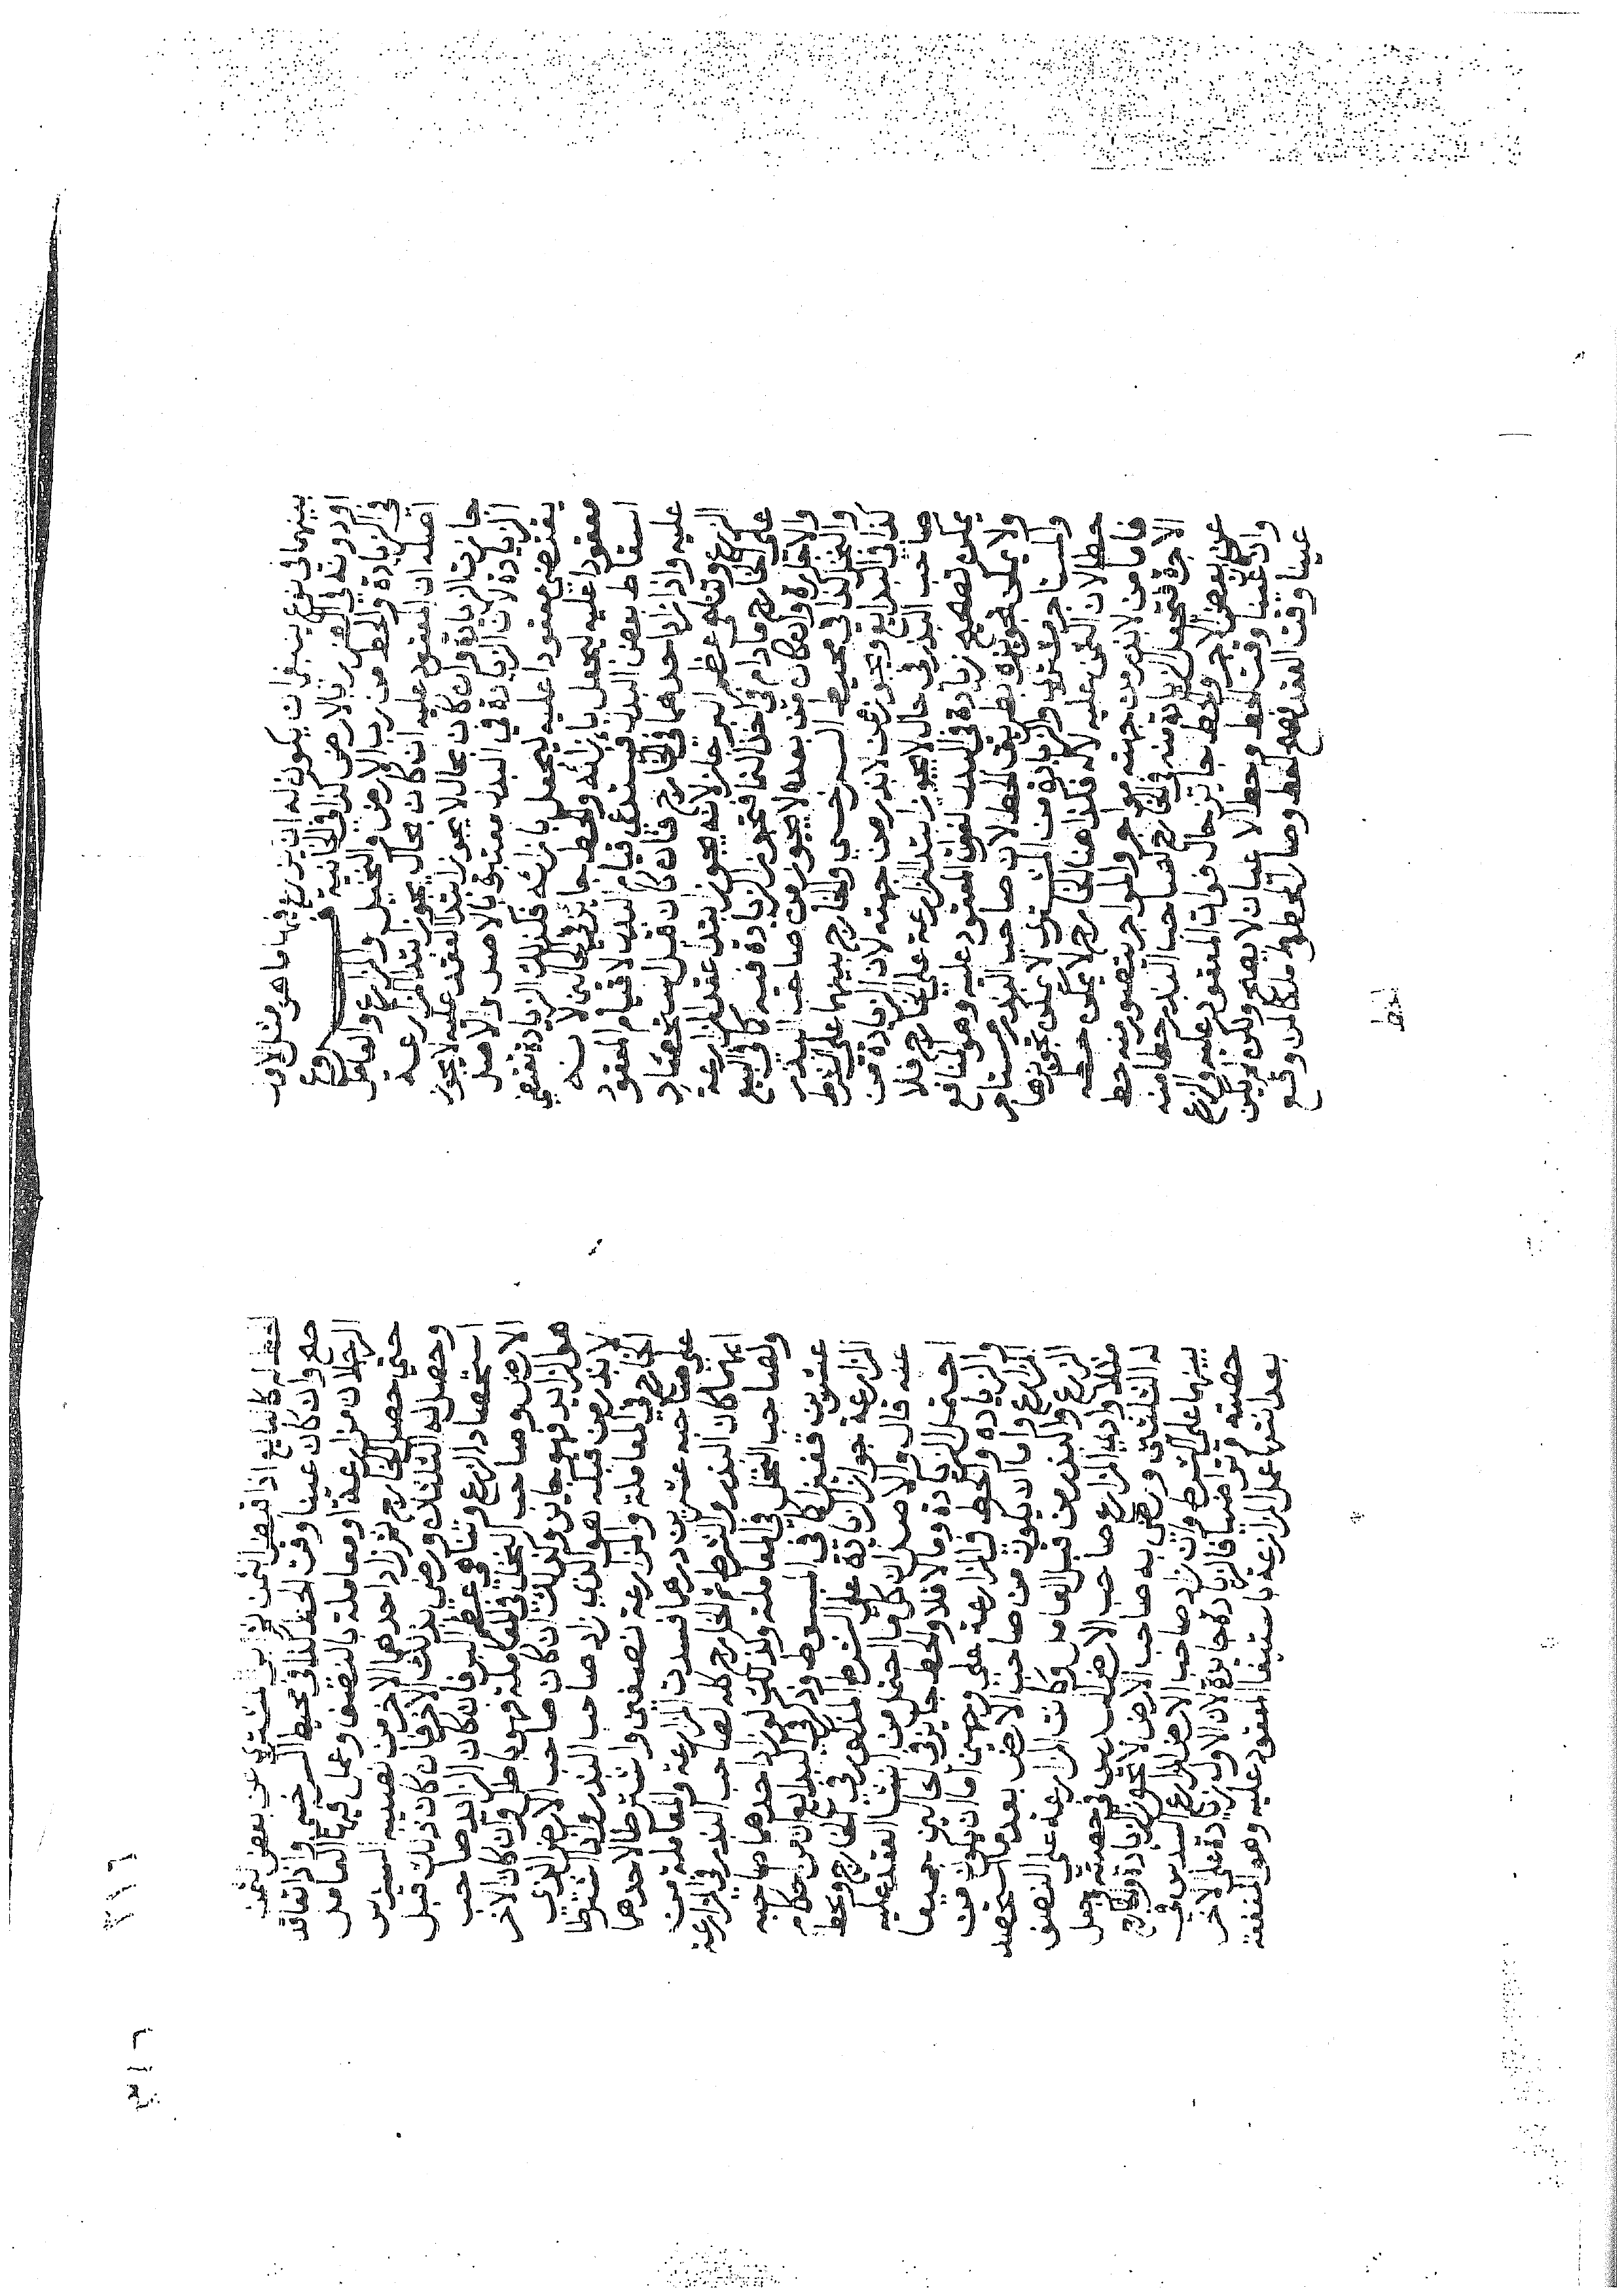 بينهما في نوع ينبغي ان يكون له ان يزرع فيها ما هو مثل الاول
او دونه في الضرر بالارض كذا في الخانية فروع
في الزيادة والحط من رب الارض والنخيل والمزارع والعامل
اصله ان المعقود عليه ان كان بحال يجوز ابتدا المزارعة
جازت الزيادة وان كان بحال لا يجوز ابتدا العقد عليه لا يجوز
الزيادة لان الزيادة في البدل معتبرة بالاصل والاصل
يقتضي معقودا عليه ليجعل بازائه فكذلك الزيادة تقتضي
معقودا عليه ليجعل بازائه والحط جائز في الحالين لانه
اسقاط بعض البدل فيستدعي قيام البدل لا قيام المعقود
عليه واذا زاد احدهما في الخارج فان كان قبل استحصاد
الزرع وتناهي عظم البسر جاز لانه يجوز ابتدا عقد المزارعة
على الخارج مادام في اخذ النما فتجوز الزيادة فيه كما في البيع
والاجارة وان كان من بعده لا يجوز من صاحب البذر
والنخل كذا في محيط السرخسي والخارج بينهما على الشرط
كذا في البدايع ويجوز ممن لا بذر من جهته لان الزيادة من
صاحب البذر في حال لا يجوز ابتدا المزارعة على الخارج فلا
يمكن تصحيح زيادة في البدل لفوات المعقود عليه وهو المنافع
ولا يمكن تجويزه بطريق الحط لان صاحب البذر مستاجر
والمستاجر مشتري والزيادة من المشتري لا يمكن تجويزها
حطا لان الثمن عليه لا له فكذا هنا الخارج لا يمكن حطه
فاما من لا بذر من جهته مواجر والمواجر يتصور منه حط
الاجرة فتجعل الزيادة منه في الخارج لصاحب البذر حطا منه
عن بعض الاجر والحط جائز حال فوات المعقود عليه والزرع
وان كان عينا وقت الحط وحط الاعيان لا يصح ولكن لم يكن
عينا وقت العقد يصح الحط وصار المحطوط ملكا من وقع
الحط
الحط له كالبايع اذا قبض الثمن ثم ابرا المشتري عن بعض الثمن
صح وان كان عينا وقت الحط كذا في محيط السرخسي واذا تعاقد
الرجلان مزارعة او معاملة بالنصف وعمل فيها العامل
حتى حصل الخارج ثم زاد احدهما الاخر من نصيبه السدس
وحصل له الثلثان ورضي بذلك الاخر فان كان ذلك قبل
استحصاد الزرع وتناهي عظم البسر فان كان الزايد صاحب
الارض وصاحب النخل في المعاملة فهو باطل وان كان الاخر
هو الزايد فهو جايز وكذلك ان كان صاحب الارض الذي
لا بذر من قبله هو الذي زاد صاحب البذر واذا اشترطا
الخارج في المعاملة والمزارعة نصفين واشترطا لاحدهما
على صاحبه عشرين درهما فسدت المزارعة والمعاملة من
ايهما كان البذر والشرط ثم الخارج كله لصاحب البذر في المزارعة
ولصاحب النخل في المعاملة وكذلك لو زاد احدهما صاحبه
عشرين قفيزا كذا في المبسوط وذكر في البدايع ان من احكام
المزارعة جواز الزيادة على الشرط المذكور في الخارج والحط
عنه قال والاصل ان كل ما احتمل من انشا العقد عليه
احتمل الزيادة وما لا فلا والحط جايز في الحالين جميعا
والزيادة والحط في المزارعة على وجهين اما ان يكون من
المزارع واما ان يكون من صاحب الارض بعد ما استحصد
الزرع والبذر من قبل العامل وكانت المزارعة على النصف
مثلا وزاد المزارع صاحب الارض السدس في حصته وجعل
له الثلثين ورضي به صاحب الارض لا تجوز الزيادة والخارج
بينهما على الشرط وان زاد صاحب الارض المزارع السدس في
حصته وتراضيا فالزيادة جايزة لان الاول زيادة على الاخر
بعد انتها عمل المزارعة باستيفا المعقود عليه وهو المنفعة